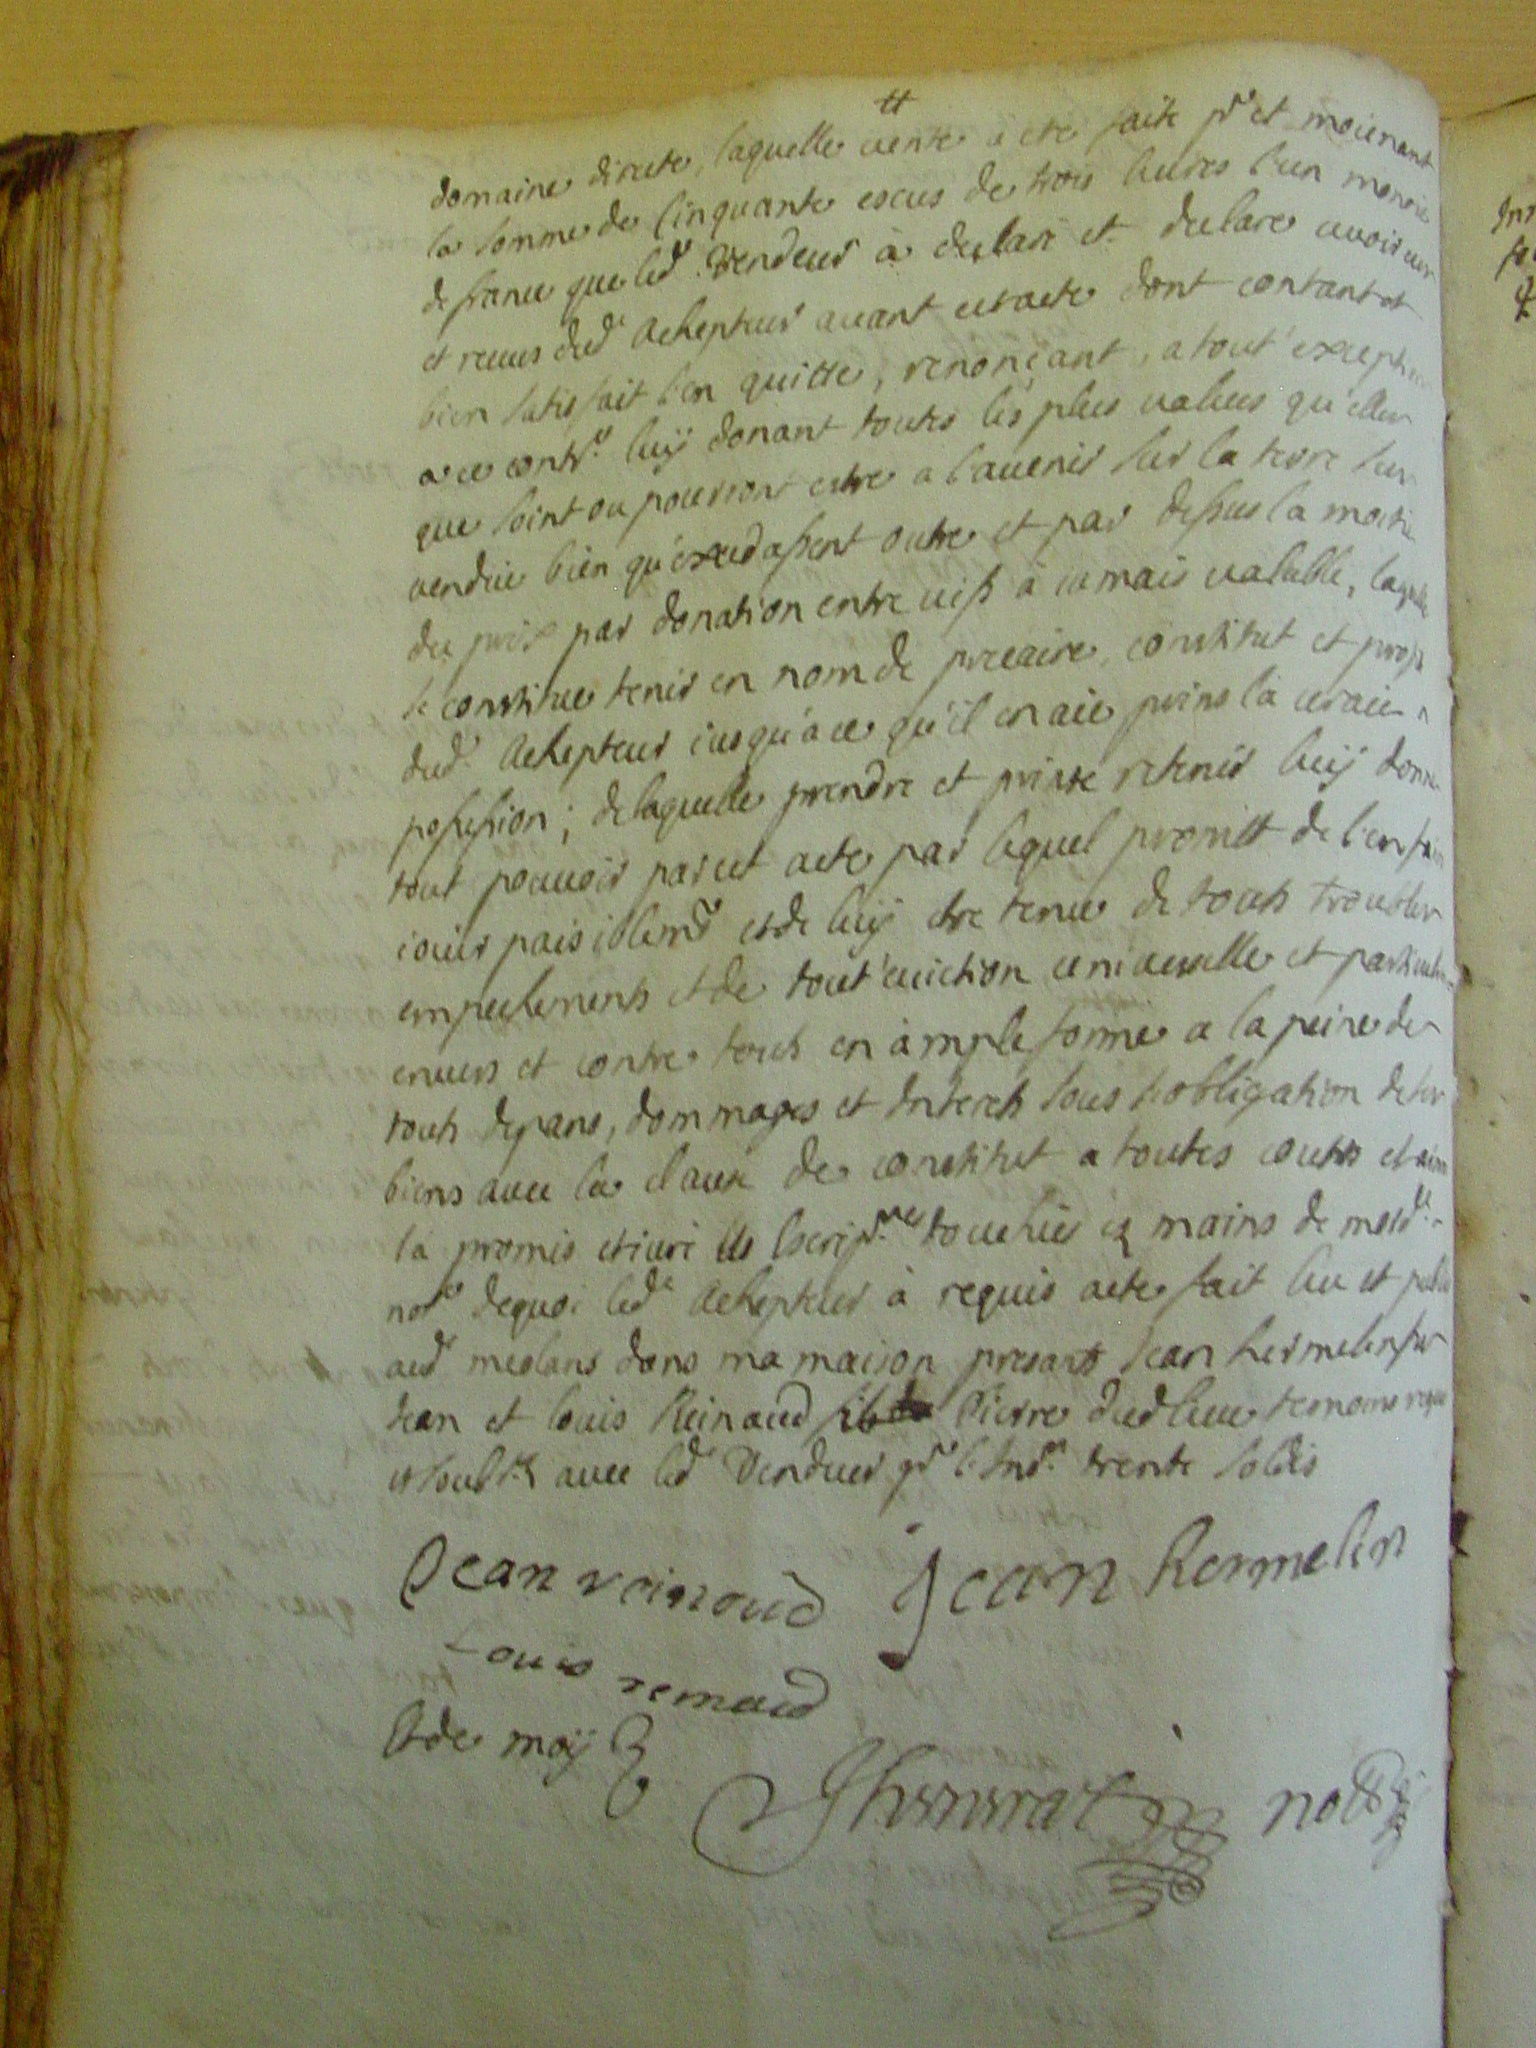 domaine directe, laquelle vente a ete faite pr et moienant
la somme de cinquante escus de trois livres l'un monoie
de france que led. vendeur à declaré et declare avoir eus
et receus dud. achepteur avant cet acte dont contant et
bien satisfait l'en quitte, renonçant, a tout exception
a ce contre. luÿ donant toutes les plus values qu'elles
que soint ou pourront estre a l'avenir sur la terre sus
vendue bien qu'excedassent outre et par dessus la moitie
du prix par donation entre vifs à iamais valable, laquelle
se constitue tenir en nom de precaire, constitut et
dud. achepteur iusqu'a ce qu'il en aie prins la vraie
possession; de laquelle prendre et prinse retenir luÿ donne
tout pouvoir par cet acte par lequel promet de l'en faire
iouir paisiblemt et de luÿ etre tenu de touts troubles
empechements et de tout eviction universelle et particuliere
envers et contre touts en ample forme a la peine de
touts depans, dommages et interets sous l'obligation de ses
biens avec la clause de constitut a toutes courts et ainsi
la promis et iuré les escript.res touchées mains de mond.
not.e dequoi led. achepteur à requis acte fait leu et publié
aud. meolans dans ma maison presants Jean hermelin feu
Jean et louis Reinaud fils de Pierre dud lieu temoins requis
et soubs.es avec led. vendeur pr l'Ins.on trente soldis
Jean reinaud Jean hermelin
Louis renaud
Et de moÿ
not.re